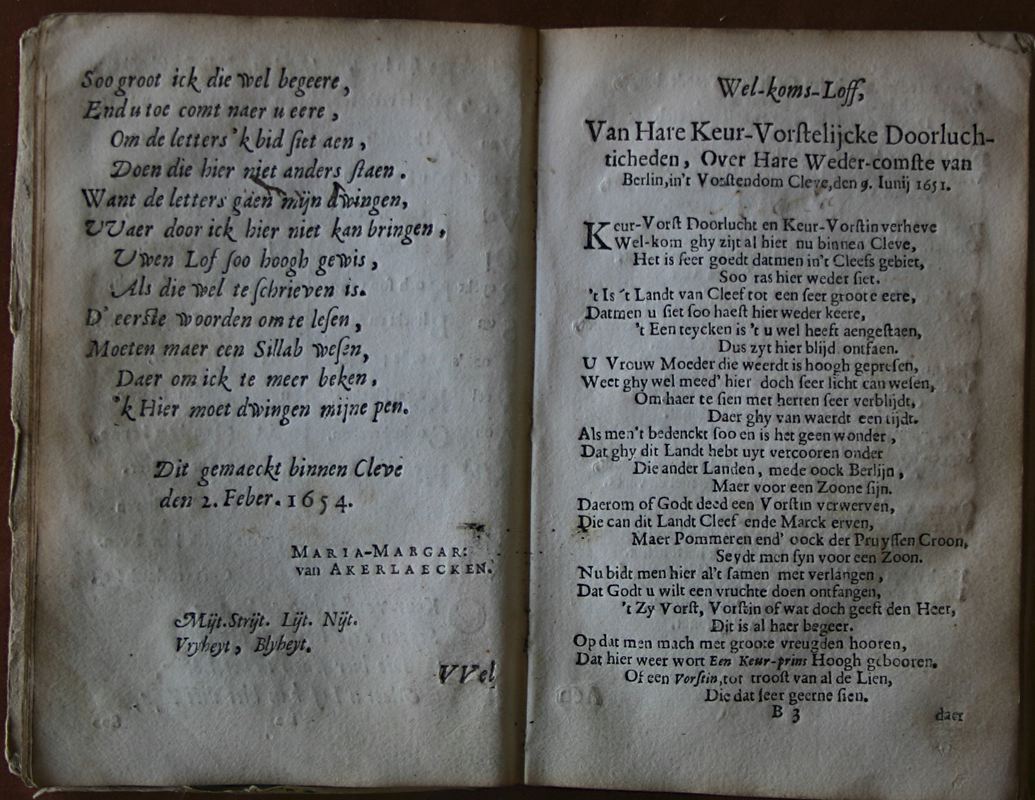 Soo groot ick die wel begeere,
End u toe comt naer u eere,
Om de letters 'k bid siet aen,
Doen die hier niet anders staen.
Want de letters gaen mijn dwingen,
VVaer door ick hier niet kan bringen,
Uwen Lof soo hoogh gewis,
Als die wel te schrieven is.
D' eerste woorden om te lesen,
Moeten maer een Sillab wesen,
Daer om ick te meer beken,
'k Hier moet dwingen mijne pen.
Dit gemaeckt binnen Cleve
den 2. Feber. 1654.
MARIA-MARGAR:
van AKERLAECKEN.
Mijt. Strijt. Lijt. Nijt.
Vryheyt, Blyheyt.
VVel
Wel-koms-Loff,
Van Hare Keur-Vorstelijcke Doorluch-
ticheden, Over Hare Weder-comste van
Berlin, in't Vorstendom Cleve, den 9. Iunij 1651.
Keur-Vorst Doorlucht en Keur-Vorstin verheve
Wel-kom ghy zijt al hier nu binnen Cleve,
Het is seer goedt datmen in't Cleefs gebiet,
Soo ras hier weder siet.
't Is 't Landt van Cleef tot een seer groote eere,
Datmen u siet soo haest hier weder keere,
't Een teycken is 't u wel heeft aengestaen,
Dus zyt hier blijd ontfaen.
U Vrouw Moeder die weerdt is hoogh gepresen,
Weet ghy wel meed' hier doch seer licht can wesen,
Om haer te sien met herten seer verblijdt,
Daer ghy van waerdt een tijdt.
Als men't bedenckt soo en is het geen wonder,
Dat ghy dit Landt hebt uyt vercooren onder
Die ander Landen, mede oock Berlijn,
Maer voor een Zoone sijn.
Daerom of Godt deed een Vorstin verwerven,
Die can dit Landt Cleef ende Marck erven,
Maer Pommeren end' oock der Pruyssen Croon,
Seydt men syn voor een Zoon.
Nu bidt men hier al't samen met verlangen,
Dat Godt u wilt een vruchte doen ontfangen,
't Zy Vorst, Vorstin of wat doch geeft den Heer,
Dit is al haer begeer.
Op dat men mach met groote vreugden hooren,
Dat hier weer wort Een Keur-prins Hoogh gebooren.
Of een Vorstin, tot troost van al de Lien,
Die dat seer geerne sien.
B 3
daer